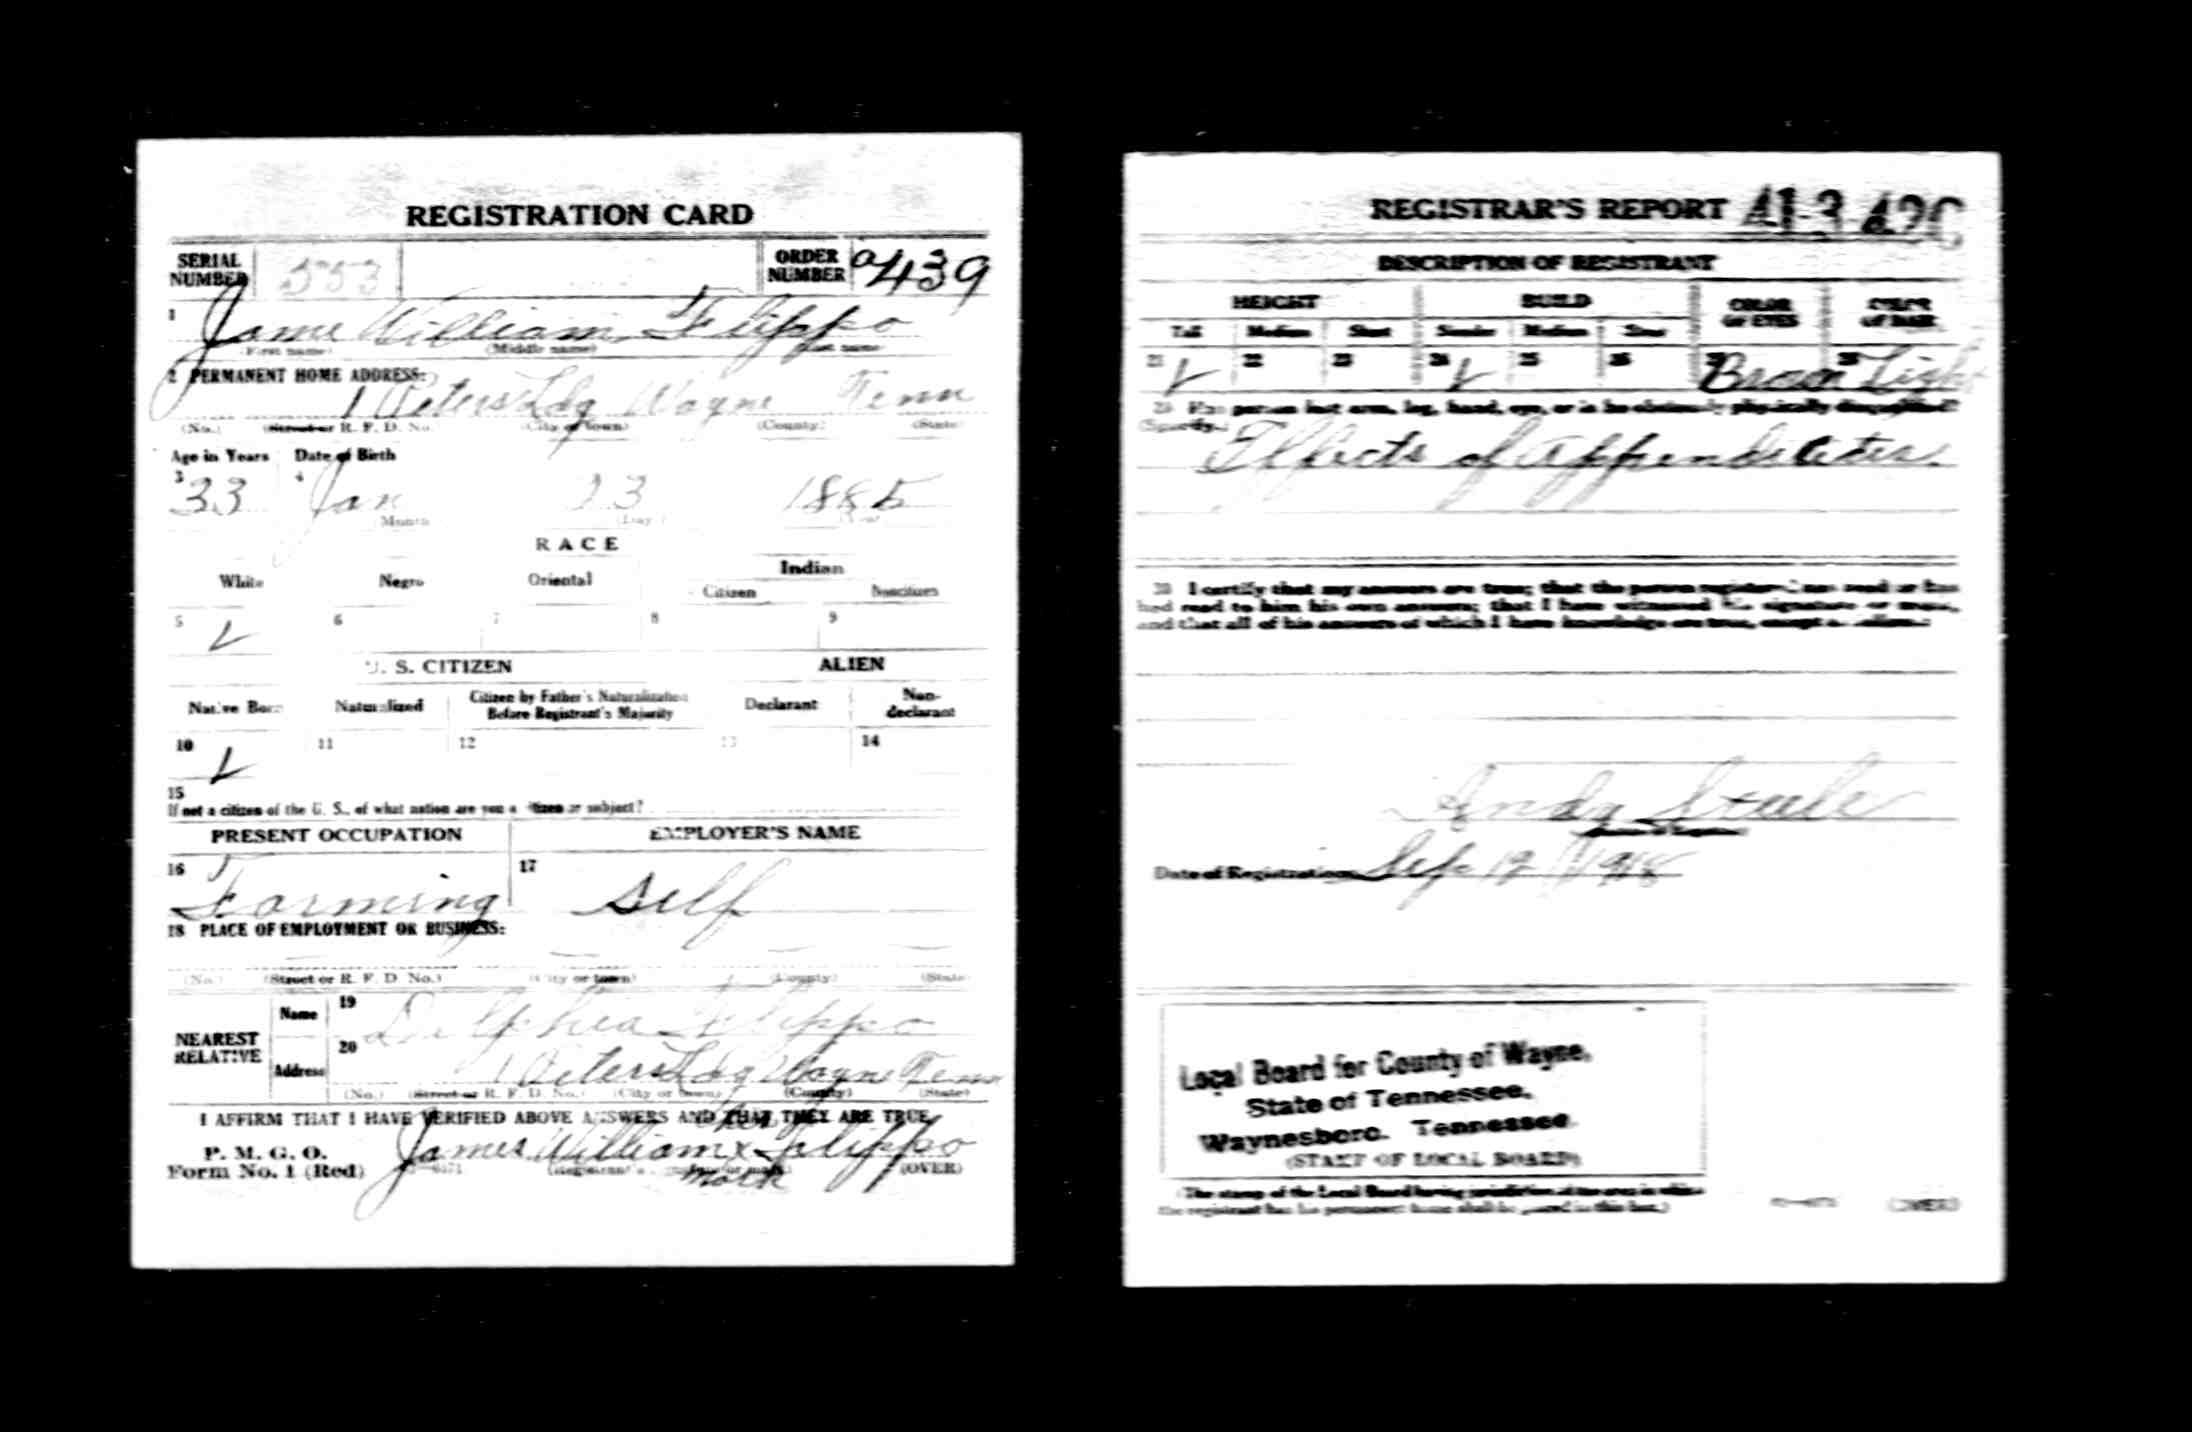 REGISTRATION CARD
SERIAL NUMBER 553 ORDER NUMBER a439
1 Jame William Flippo
(First name) (Middle name) (Last name)
2 PERMANENT HOME ADDRESS:
1 Peters Ldg Wayne Tenn
(No.) (Street or R. F. D. No.) (City or town) (County) (State)
Age in Years Date of Birth
3 33 4 Jan 23 1885
Month (Day)
RACE
White Negro Oriental Indian
Citizen Noncitizen
5 ✓ 6 7 8 9
U. S. CITIZEN ALIEN
Native Born Naturalized Citizen by Father's Naturalization Before Registrant's Majority Declarant Non-declarant
10 ✓ 11 12 13 14
15
If not a citizen of the U. S., of what nation are you a citizen or subject?
PRESENT OCCUPATION EMPLOYER'S NAME
16 Farming 17 Self
18 PLACE OF EMPLOYMENT OR BUSINESS:
(No.) (Street or R. F. D. No.) (City or town) (County) (State)
NEAREST RELATIVE Name 19 Delphia Flippo
Address 20 1 Peters Ldg Wayne Tenn
(No.) (Street or R. F. D. No.) (City or town) (County) (State)
I AFFIRM THAT I HAVE VERIFIED ABOVE ANSWERS AND THAT THEY ARE TRUE
P. M. G. O.
Form No. 1 (Red) James William x Flippo
mark (OVER)
REGISTRAR'S REPORT 41-3-42C
DESCRIPTION OF REGISTRANT
HEIGHT BUILD COLOR OF EYES COLOR OF HAIR
Tall Medium Short Slender Medium Stout
21 ✓ 22 23 24 ✓ 25 26 27 Brown 28 Light
29 Has person lost arm, leg, hand, eye, or is he obviously physically disqualified?
(Specify.)
Effects of Appendicites.
30 I certify that my answers are true; that the person registered has read or has
had read to him his own answers; that I have witnessed his signature or mark,
and that all of his answers of which I have knowledge are true, except as follows:
Andy Steele
Date of Registration Sep 12 1918
Local Board for County of Wayne,
State of Tennessee,
Waynesboro. Tennessee.
(STAMP OF LOCAL BOARD)
(The stamp of the Local Board having jurisdiction of the area in which
the registrant has his permanent home shall be placed in this box.)
(OVER)